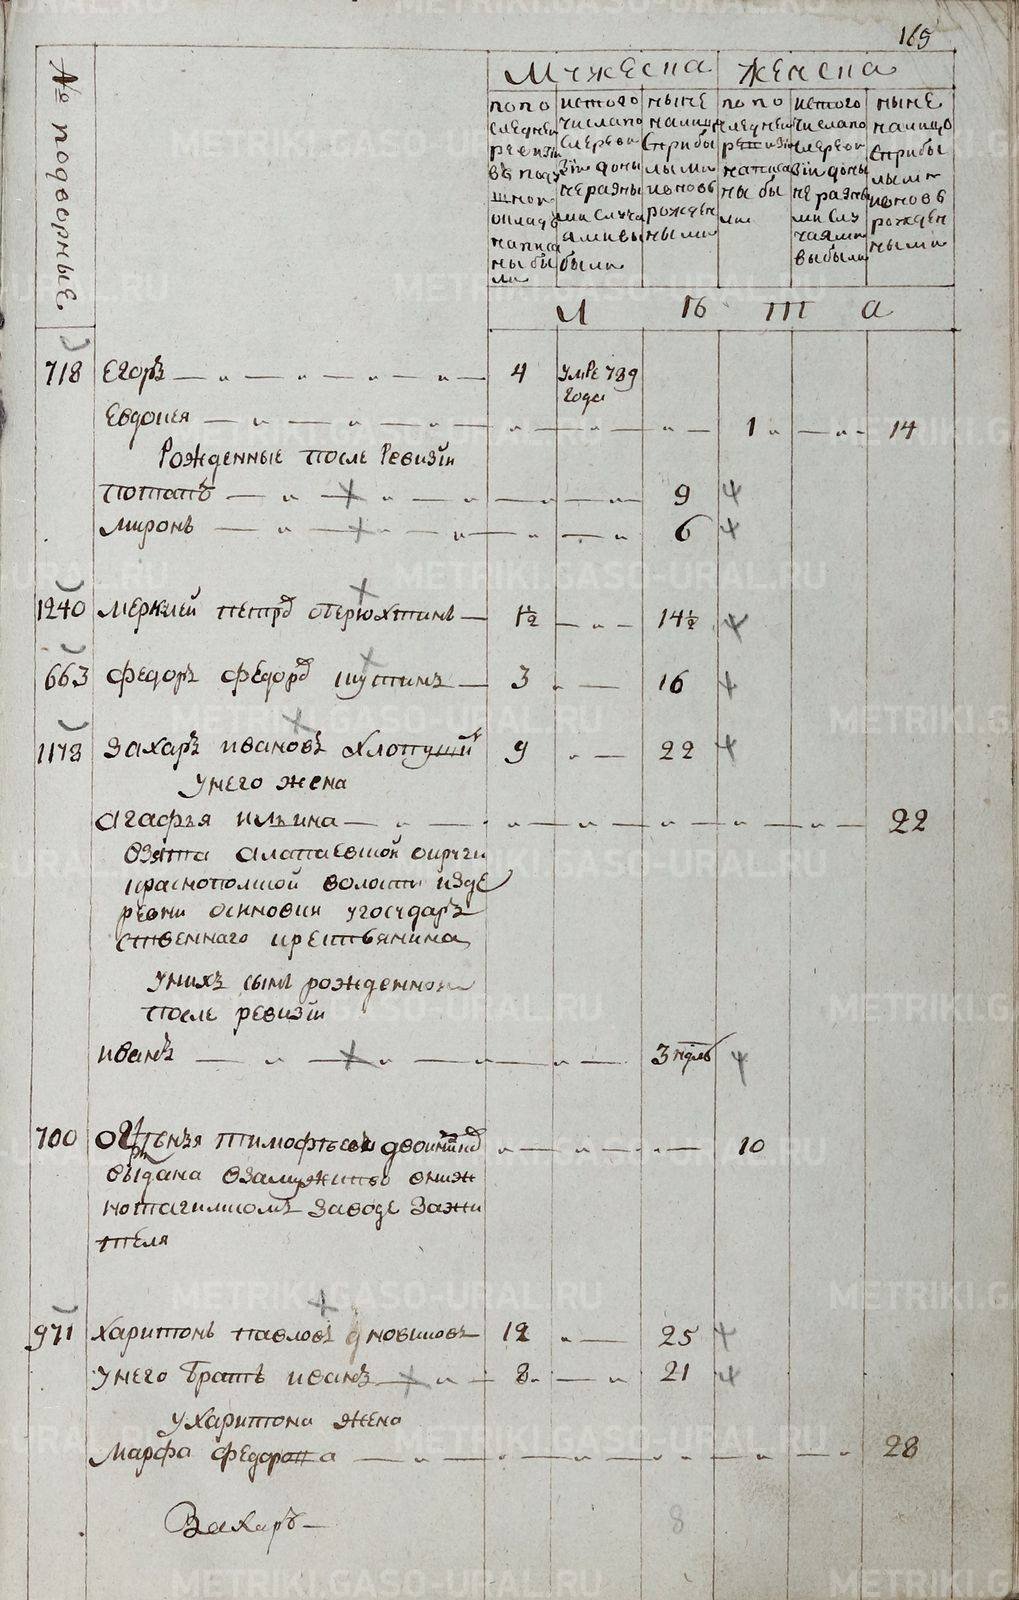 165
№ подворные
Мужеска
Женска
попо
следней
ревизи
в поду
шной
окладъ
написа
ны бы
ли
истого
числапо
слереви
зiи доны
не разны
ми случа
ями вы
были
ныне
налицо
сприбы
лыми
иновь
рожден
ными
попо
следней
ревизи
написа
ны бы
ли
истого
числапо
слереви
зiи доны
не разны
ми слу
чаями
выбыли
ныне
налицо
сприбы
лыми
иновь
рожден
ными
Лѣта
718 Егоръ 4 умре 789
года
Евдокея 1 14
Рожденные после Ревизiи
потапъ 9
миронъ 6
1240 меркией петрд отерюхтинъ 1½ 14½
663 федоръ федорд шустинъ 3 16
1178 захаръ ивановъ хлопуший 9 22
унего жена
агафья ильина 22
взята алапаевшой округи
краснополской волости изде
ревни осиновки угосудар
ственнаго крестьянина
унихъ сынъ рожденной
после ревизiи
иванъ 3 недль
700 тимофѣева двоинишд 10
выдана взамужитво внижн
нотагилшомъ заводе зажи
теля
971 харитонъ павловъ новиковъ 12 25
унего братъ иванъ 8 21
ухаритона жена
марфа федорова 28
Захаръ
8
METRIKI.GASO-URAL.RU